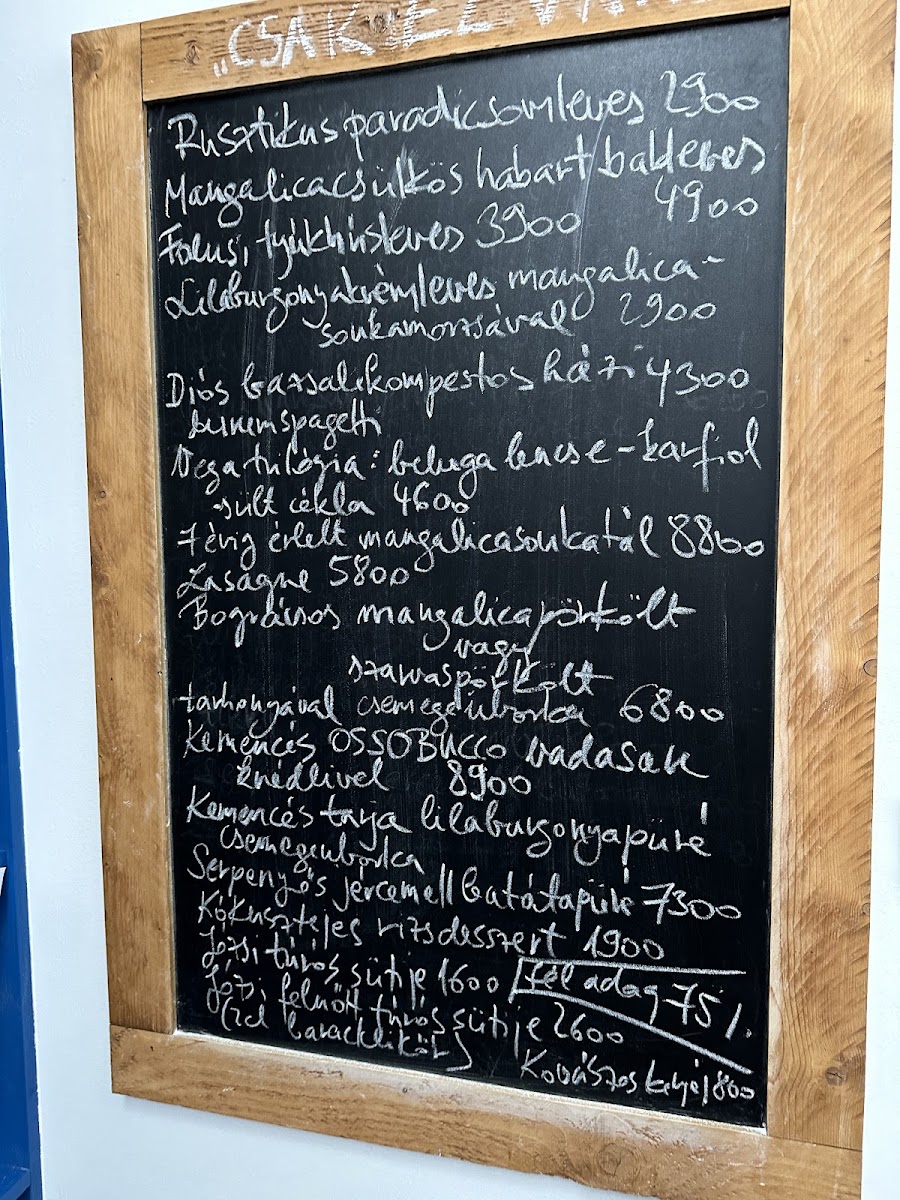 „CSAK EZ VAN
Rusztikus paradicsomleves 2900
Mangalicacsülkös habart bableves
4900
Falusi tyúkhúsleves 3900
Lilaburgonyakrémleves mangalica-
sonkamorzsával 2900
Diós bazsalikompestos házi 4300
durumspagetti
Vega trilógia: beluga lencse-karfiol
-sült cékla 4600
7 évig érlelt mangalicasonkatál 8800
Lasagne 5800
Bográcsos mangalicapörkölt
vagy
szarvaspörkölt
tarhonyával csemegeuborka 6800
Kemencés OSSOBUCCO vadasak
knédlivel 8900
Kemencés tarja lilaburgonyapüré
csemegeuborka
Serpenyős jércemell batátapüré 7300
Kókusztejes rizsdesszert 1900
Józsi túrós sütije 1600 fél adag 75%
Józsi felnőtt túrós sütije 2600
baracklikőr)
Kovászos kenyér 800